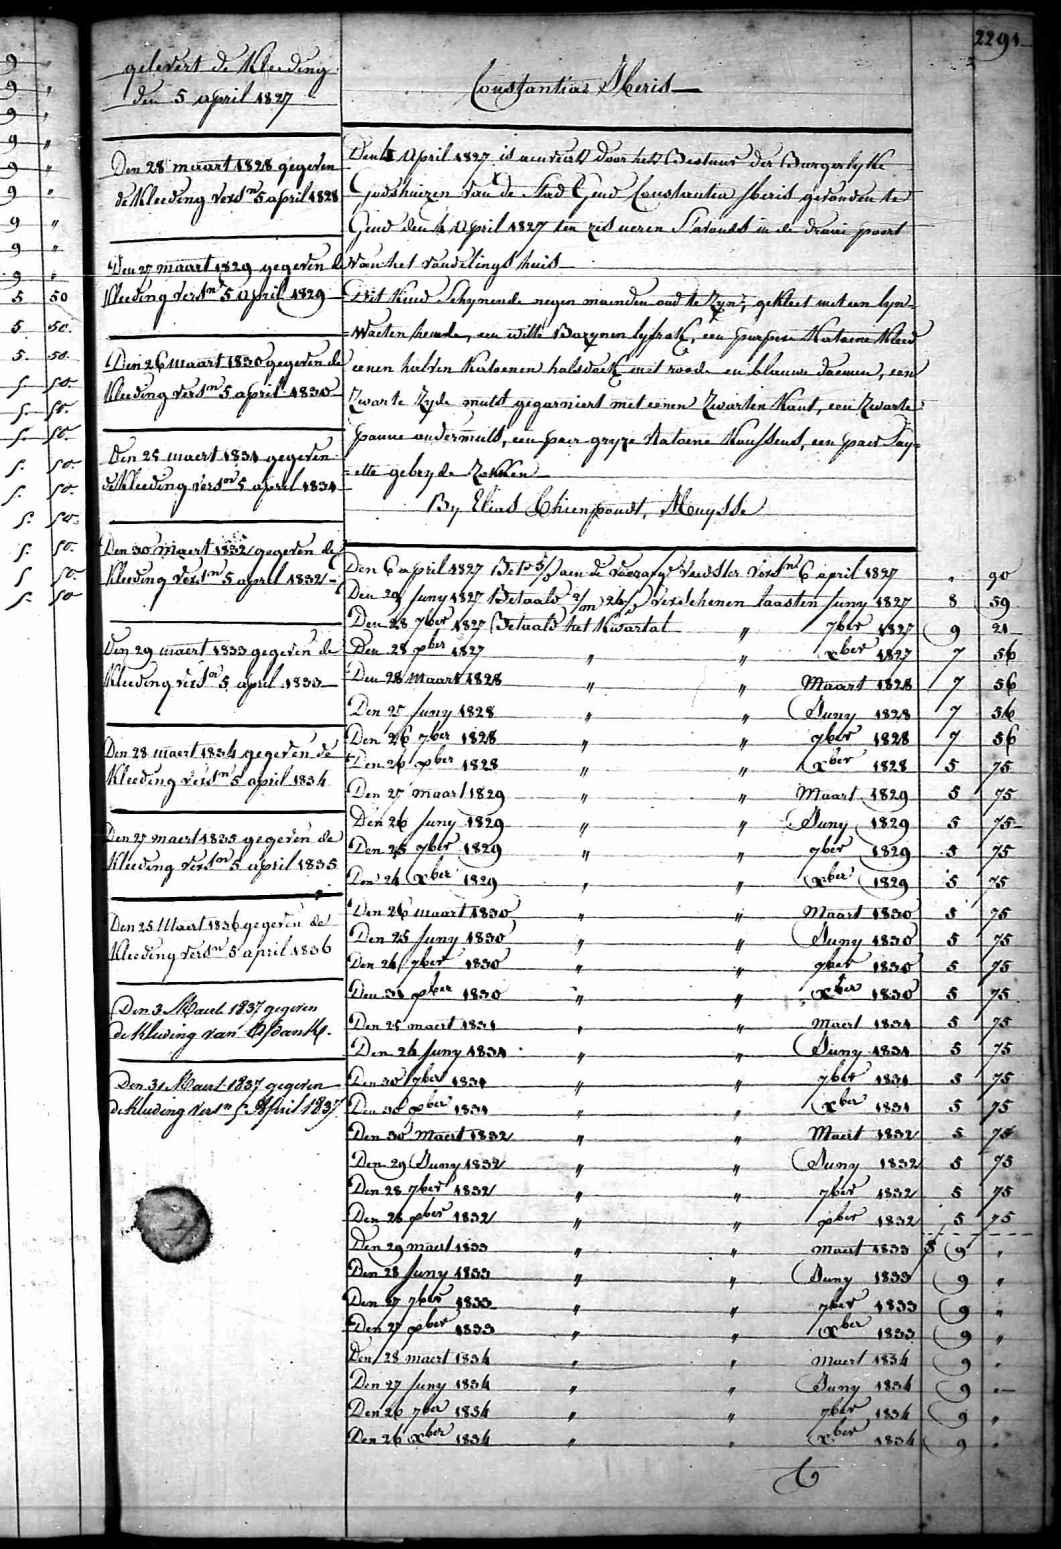 2291
gelevert de Kleeding
den 5 april 1827
Den 28 maart 1828 gegeven
de Kleeding versn 5 april 1828
Den 27 maart 1829 gegeven de
Kleeding versn 5 april 1829
Den 26 maart 1830 gegeven de
Kleeding versn 5 april 1830
Den 25 maert 1831 gegeven
de Kleeding versn 5 april 1831
Den 30 maert 1832 gegeven de
Kleeding versn 5 april 1832
Den 29 maert 1833 gegeven de
Kleeding versn 5 april 1833
Den 28 maert 1834 gegeven de
Kleeding versn 5 april 1834
Den 27 maert 1835 gegeven de
Kleeding versn 5 april 1835
Den 25 Maert 1836 gegeven de
Kleeding versn 5 april 1836
Den 3 Maert 1837 gegeven
de Kleeding van Afdank.
Den 31 Maert 1837 gegeven
de Kleeding versn 5 April 1837
Constantia Iberis
Den 4 April 1827 is aenveert door het Bestuur der Burgerlyke
Godshuizen van de Stad Gend Constantia Iberis gevonden te
Gend den 4 April 1827 ten zes ueren s'avonds in de draai poort
van het vondelings huis
Dit kind schynende negen maenden oud te zyn, gekleet met een lyn-
waeten hemde, een witte Bazynen lyfrok, een purper Katoene Kleed
eenen halven Katoenen halsdoek met roode en blauwe daemen, een
Zwarte Zyde muts gegarniert met eenen Zwarten Kant, een Zwarte
panne ondermuts, een paer gryze Katoene Koussens, een paer Say-
ette gebryde Zokken
By Elias Chienpondt, Muysse
Den 6 april 1827 Bet aen de voorzorg Veedster versn 6 april 1827 " 90
Den 29 Juny 1827 Betaald 2/m 26/d verschenen laasten Juny 1827 8 59
Den 28 7ber 1827 Betaald het Kwartal " 7ber 1827 9 21
Den 28 xber 1827 " " xber 1827 7 56
Den 28 Maart 1828 " " Maart 1828 7 56
Den 25 Juny 1828 " " Juny 1828 7 56
Den 26 7ber 1828 " " 7ber 1828 7 56
Den 26 xber 1828 " " xber 1828 5 75
Den 27 maart 1829 " " Maart 1829 5 75
Den 26 Juny 1829 " " Juny 1829 5 75
Den 25 7ber 1829 " " 7ber 1829 5 75
Den 24 xber 1829 " " xber 1829 5 75
Den 26 maart 1830 " " Maart 1830 5 75
Den 25 Juny 1830 " " Juny 1830 5 75
Den 24 7ber 1830 " " 7ber 1830 5 75
Den 31 xber 1830 " " xber 1830 5 75
Den 25 maert 1831 " " Maert 1831 5 75
Den 24 Juny 1831 " " Juny 1831 5 75
Den 30 7ber 1831 " " 7ber 1831 5 75
Den 30 xber 1831 " " xber 1831 5 75
Den 30 Maert 1832 " " Maert 1832 5 75
Den 29 Juny 1832 " " Juny 1832 5 75
Den 28 7ber 1832 " " 7ber 1832 5 75
Den 28 xber 1832 " " xber 1832 5 75
Den 29 maert 1833 " " maert 1833 9 "
Den 28 Juny 1833 " " Juny 1833 9 "
Den 27 7ber 1833 " " 7ber 1833 9 "
Den 27 xber 1833 " " xber 1833 9 "
Den 28 maert 1834 " " maert 1834 9 "
Den 27 Juny 1834 " " Juny 1834 9 "
Den 26 7ber 1834 " " 7ber 1834 9 "
Den 26 xber 1834 " " xber 1834 9 "